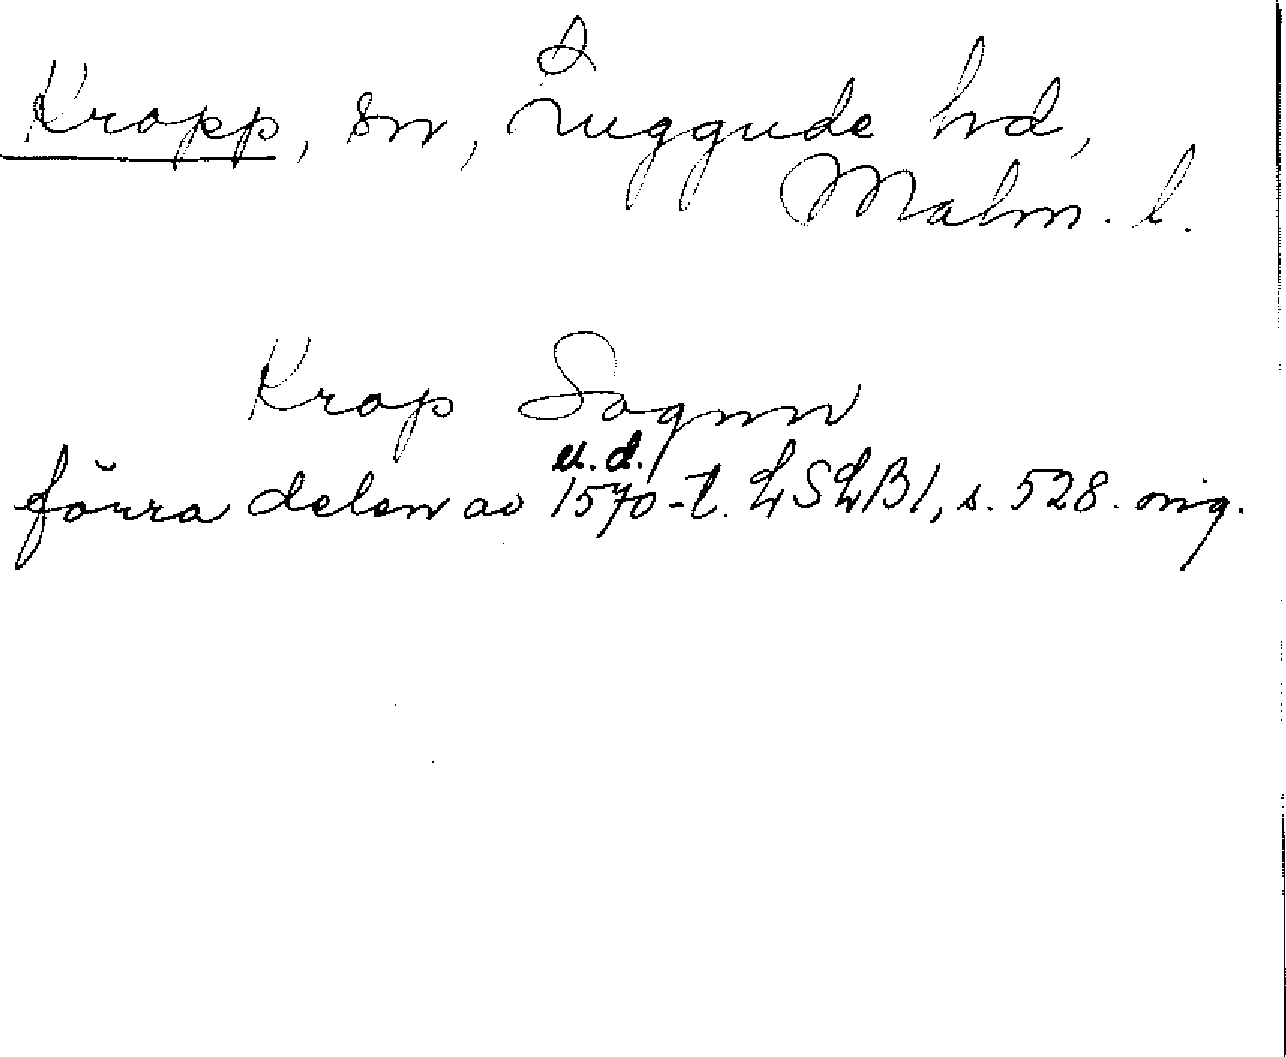 Kropp, sn, Luggude hd,
Malm. l.
Krop Sognn
u. d.
förra delen av 1570-t. LSLB1, s. 528. orig.